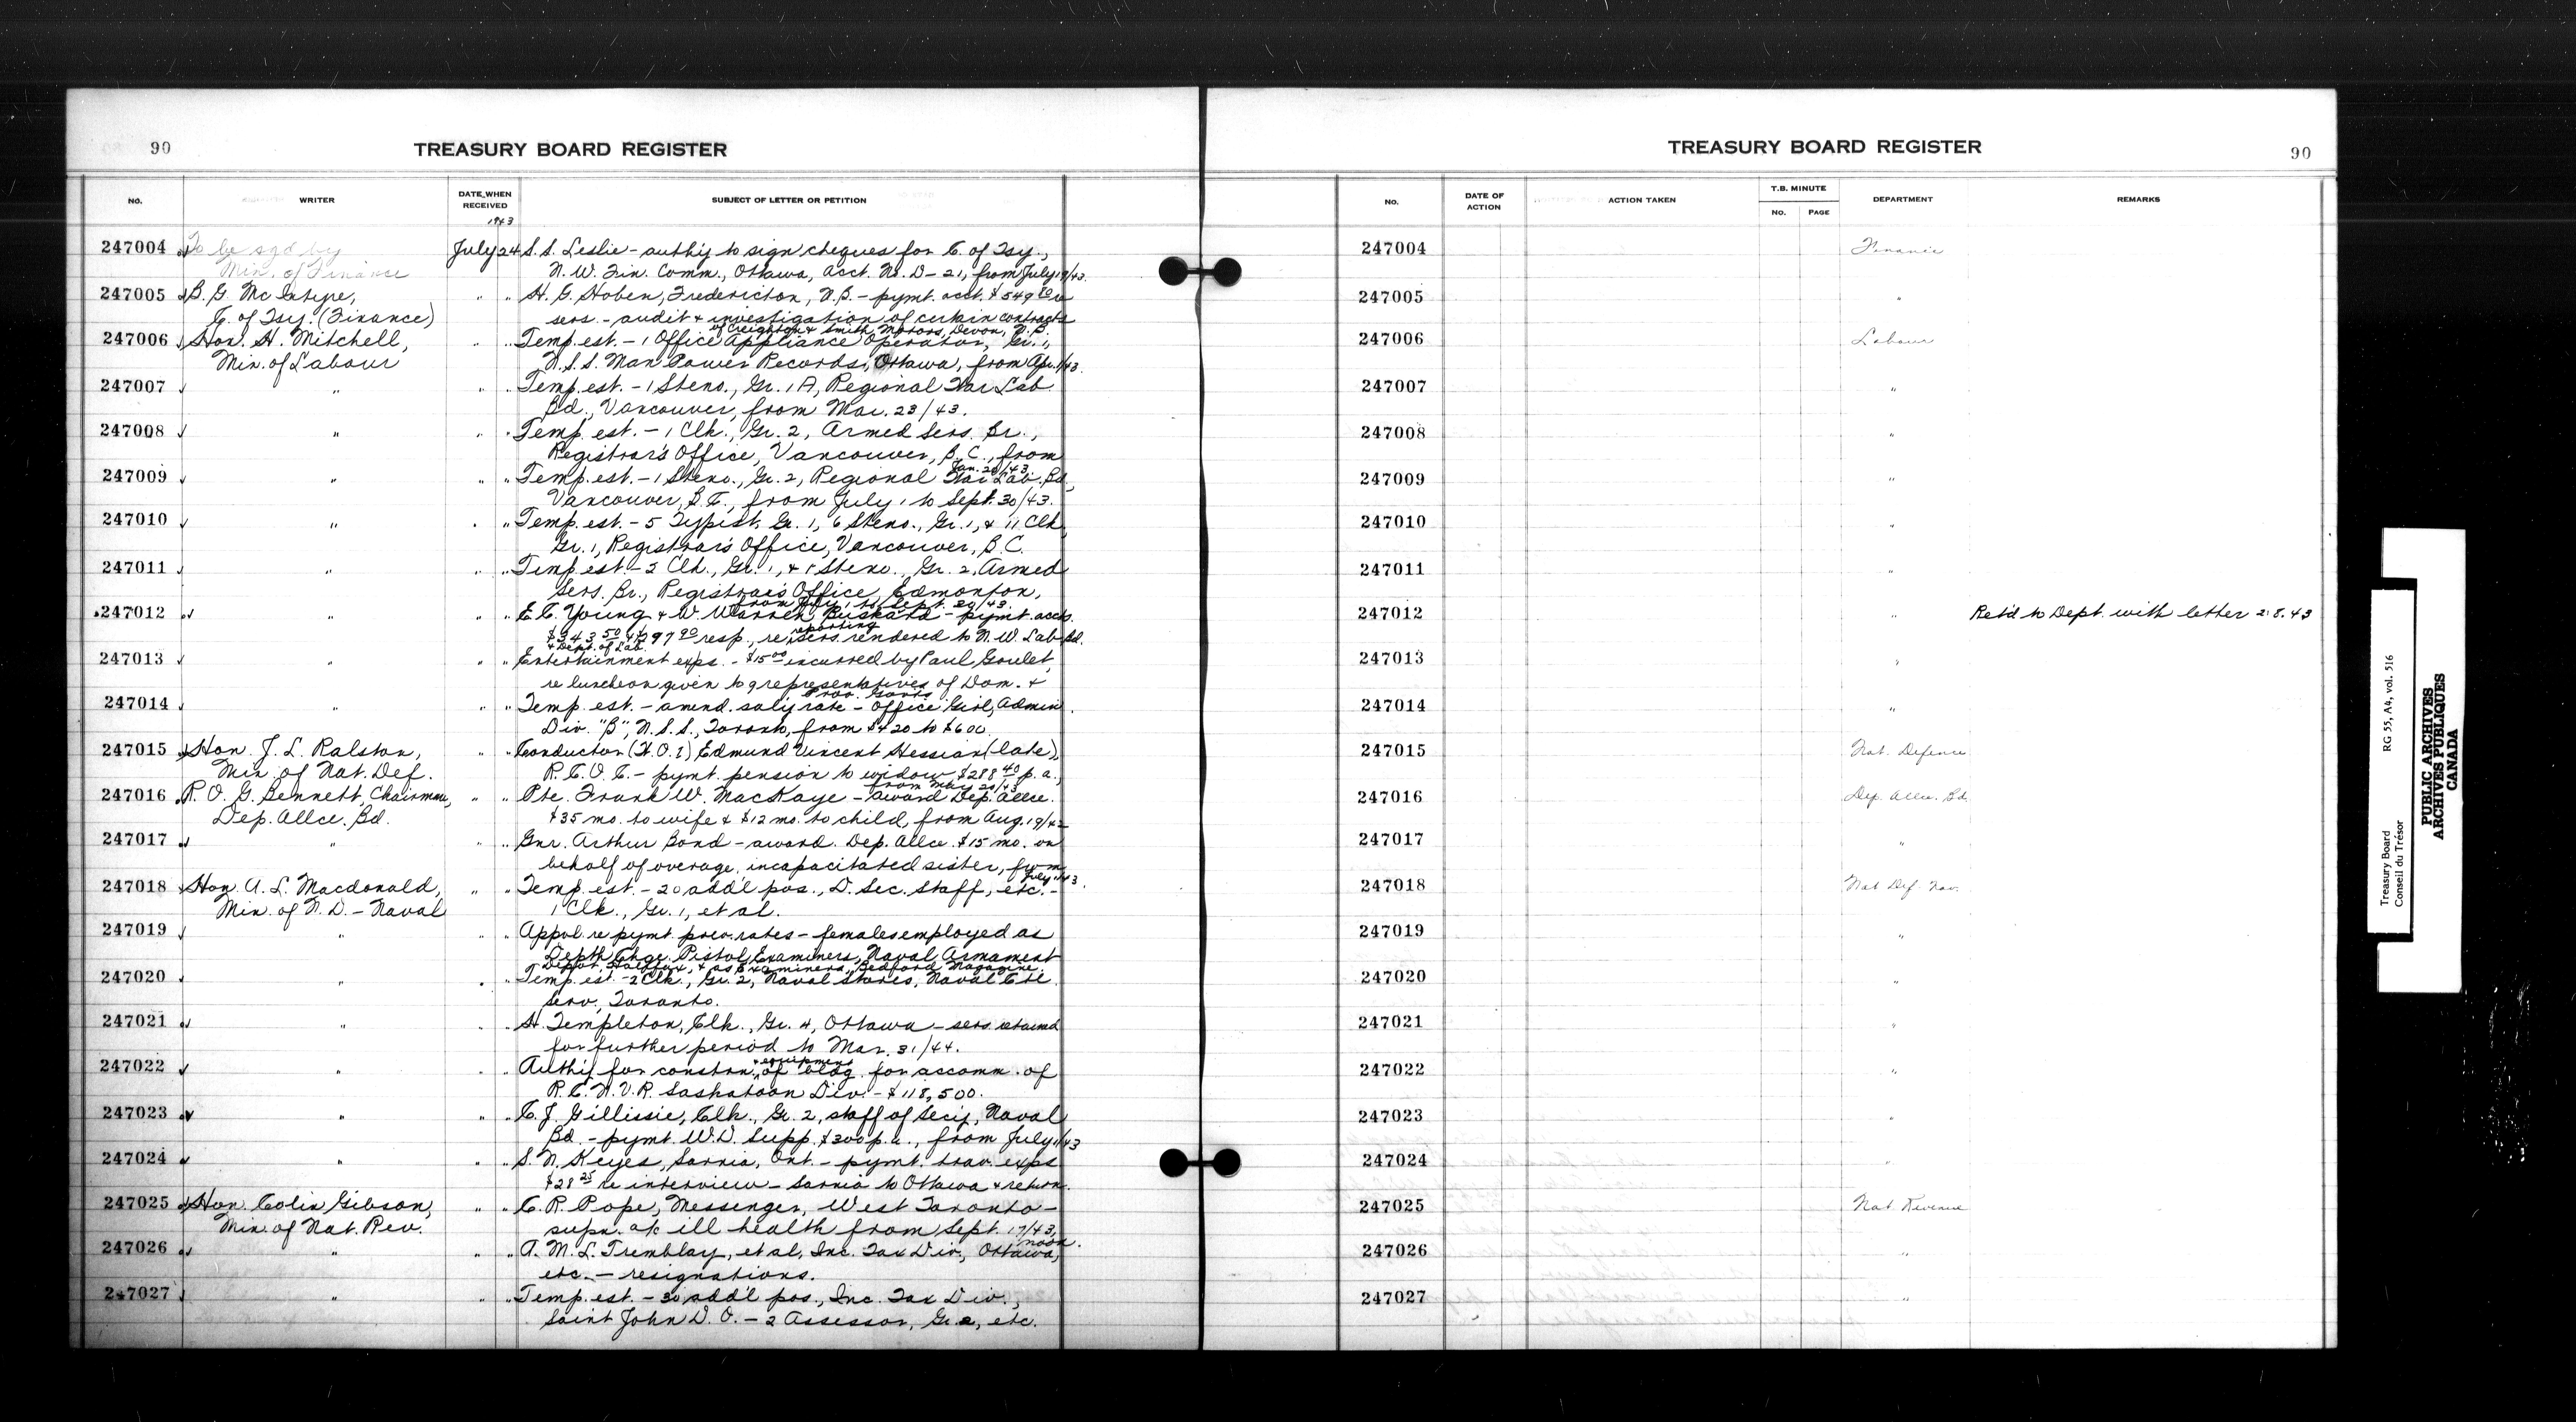 90
TREASURY BOARD REGISTER
NO. WRITER DATE WHEN RECEIVED SUBJECT OF LETTER OR PETITION
1943
247004 To be sgd by July 24 S. S. Leslie - auth'y to sign cheques for C. of Tsy.,
Min. of Finance N. W. Fin. Comm., Ottawa, Acct. No. D-21, from July 19/43.
247005 B. G. McIntyre, " " H. G. Hoben, Fredericton, N.B. - pymt. acct. $549.80 re
C. of Tsy. (Finance) sers. - audit & investigation of certain contracts
of Creighton & Smith Motors, Devon, N.B.
247006 Hon. H. Mitchell, " " Temp. est. - 1 Office Appliance Operator, Gr. 1,
Min. of Labour N.S.S. Man Power Records, Ottawa, from Apr. 1/43.
247007 " " " Temp. est. - 1 Steno., Gr. 1A, Regional War Lab.
Bd., Vancouver, from Mar. 23/43.
247008 " " " Temp. est. - 1 Clk., Gr. 2, Armed Sers. Br.,
Registrar's Office, Vancouver, B.C., from
Jan. 20/43
247009 " " " Temp. est. - 1 Steno., Gr. 2, Regional War Lab. Bd.,
Vancouver, B.C., from July 1 to Sept. 30/43.
247010 " " " Temp. est. - 5 Typist, Gr. 1, 6 Steno., Gr. 1, & 11 Clk
Gr. 1, Registrar's Office, Vancouver, B.C.
247011 " " " Temp. est. - 2 Clk., Gr. 1, & 1 Steno., Gr. 2, Armed
Sers. Br., Registrar's Office, Edmonton,
from July 1 to Sept. 30/43.
247012 " " " E. C. Young & W. Warren Buskard - pymt. accts.
$343.50 & $297.90 resp., re reporting sers. rendered to N. W. Lab. Bd.
& Dept. of Lab.
247013 " " " Entertainment exps. - $15.00 incurred by Paul Goulet,
re luncheon given to 9 representatives of Dom. &
Prov. Govts.
247014 " " " Temp. est. - amend. sal'y rate - Office Girl, Admin.
Div. "B", N.S.S., Toronto, from $420 to $600.
247015 Hon. J. L. Ralston, " " Conductor (W.O. 1) Edmund Vincent Hessian (late),
Min. of Nat. Def. R.C.O.C. - pymt. pension to widow, $288.40 p.a.,
from May 20/43
247016 R. O. G. Bennett, Chairman, " " Pte. Frank W. MacKaye - award Dep. Allce.
Dep. Allce. Bd. $35 mo. to wife & $12 mo. to child, from Aug. 19/42
247017 " " " Gnr. Arthur Bond - award. Dep. Allce. $15 mo. on
behalf of overage, incapacitated sister, from
July 1/43.
247018 Hon. A. L. Macdonald, " " Temp. est. - 20 add'l pos., D. Sec. Staff, etc. -
Min. of N. D. - Naval 1 Clk., Gr. 1, et al.
247019 " " " Appvl. re pymt. prev. rates - females employed as
Depth Chge. Pistol Examiners, Naval Armament
Depot, Halifax, & as Examiners, Bedford Magazine.
247020 " " " Temp. est. - 2 Clk., Gr. 2, Naval Stores, Naval Ctl.
Serv., Toronto.
247021 " " " H. Templeton, Clk., Gr. 4, Ottawa - sers. retained
for further period to Mar. 31/44.
247022 " " " Auth'y for constrn. & equipment of bldg. for accomm. of
R.C.N.V.R. Saskatoon Div. - $118,500.
247023 " " " C. J. Gillissie, Clk., Gr. 2, staff of Sec'y, Naval
Bd. - pymt. W.D. Supp. $300 p.a., from July 1/43
247024 " " " S. N. Keyes, Sarnia, Ont. - pymt. trav. exps.
$28.25 re interview - Sarnia to Ottawa & return.
247025 Hon. Colin Gibson, " " C. R. Pope, Messenger, West Toronto -
Min. of Nat. Rev. supn. a/c ill health from Sept. 17/43,
noon.
247026 " " " A. M. L. Tremblay, et al, Inc. Tax Div., Ottawa,
etc. - resignations.
247027 " " " Temp. est. - 30 add'l pos., Inc. Tax Div.,
Saint John D.O. - 2 Assessor, Gr. 2, etc.
TREASURY BOARD REGISTER
90
NO. DATE OF ACTION ACTION TAKEN T.B. MINUTE NO. PAGE DEPARTMENT REMARKS
247004 Finance
247005 "
247006 Labour
247007 "
247008 "
247009 "
247010 "
247011 "
247012 " Ret'd to Dept. with letter 2.8.43
247013 "
247014 "
247015 Nat. Defence
247016 Dep. Allce. Bd.
247017 "
247018 Nat Def. Nav.
247019 "
247020 "
247021 "
247022 "
247023 "
247024 "
247025 Nat. Revenue
247026 "
247027 "
Treasury Board RG 55, A4, vol. 516
Conseil du Trésor
PUBLIC ARCHIVES
ARCHIVES PUBLIQUES
CANADA